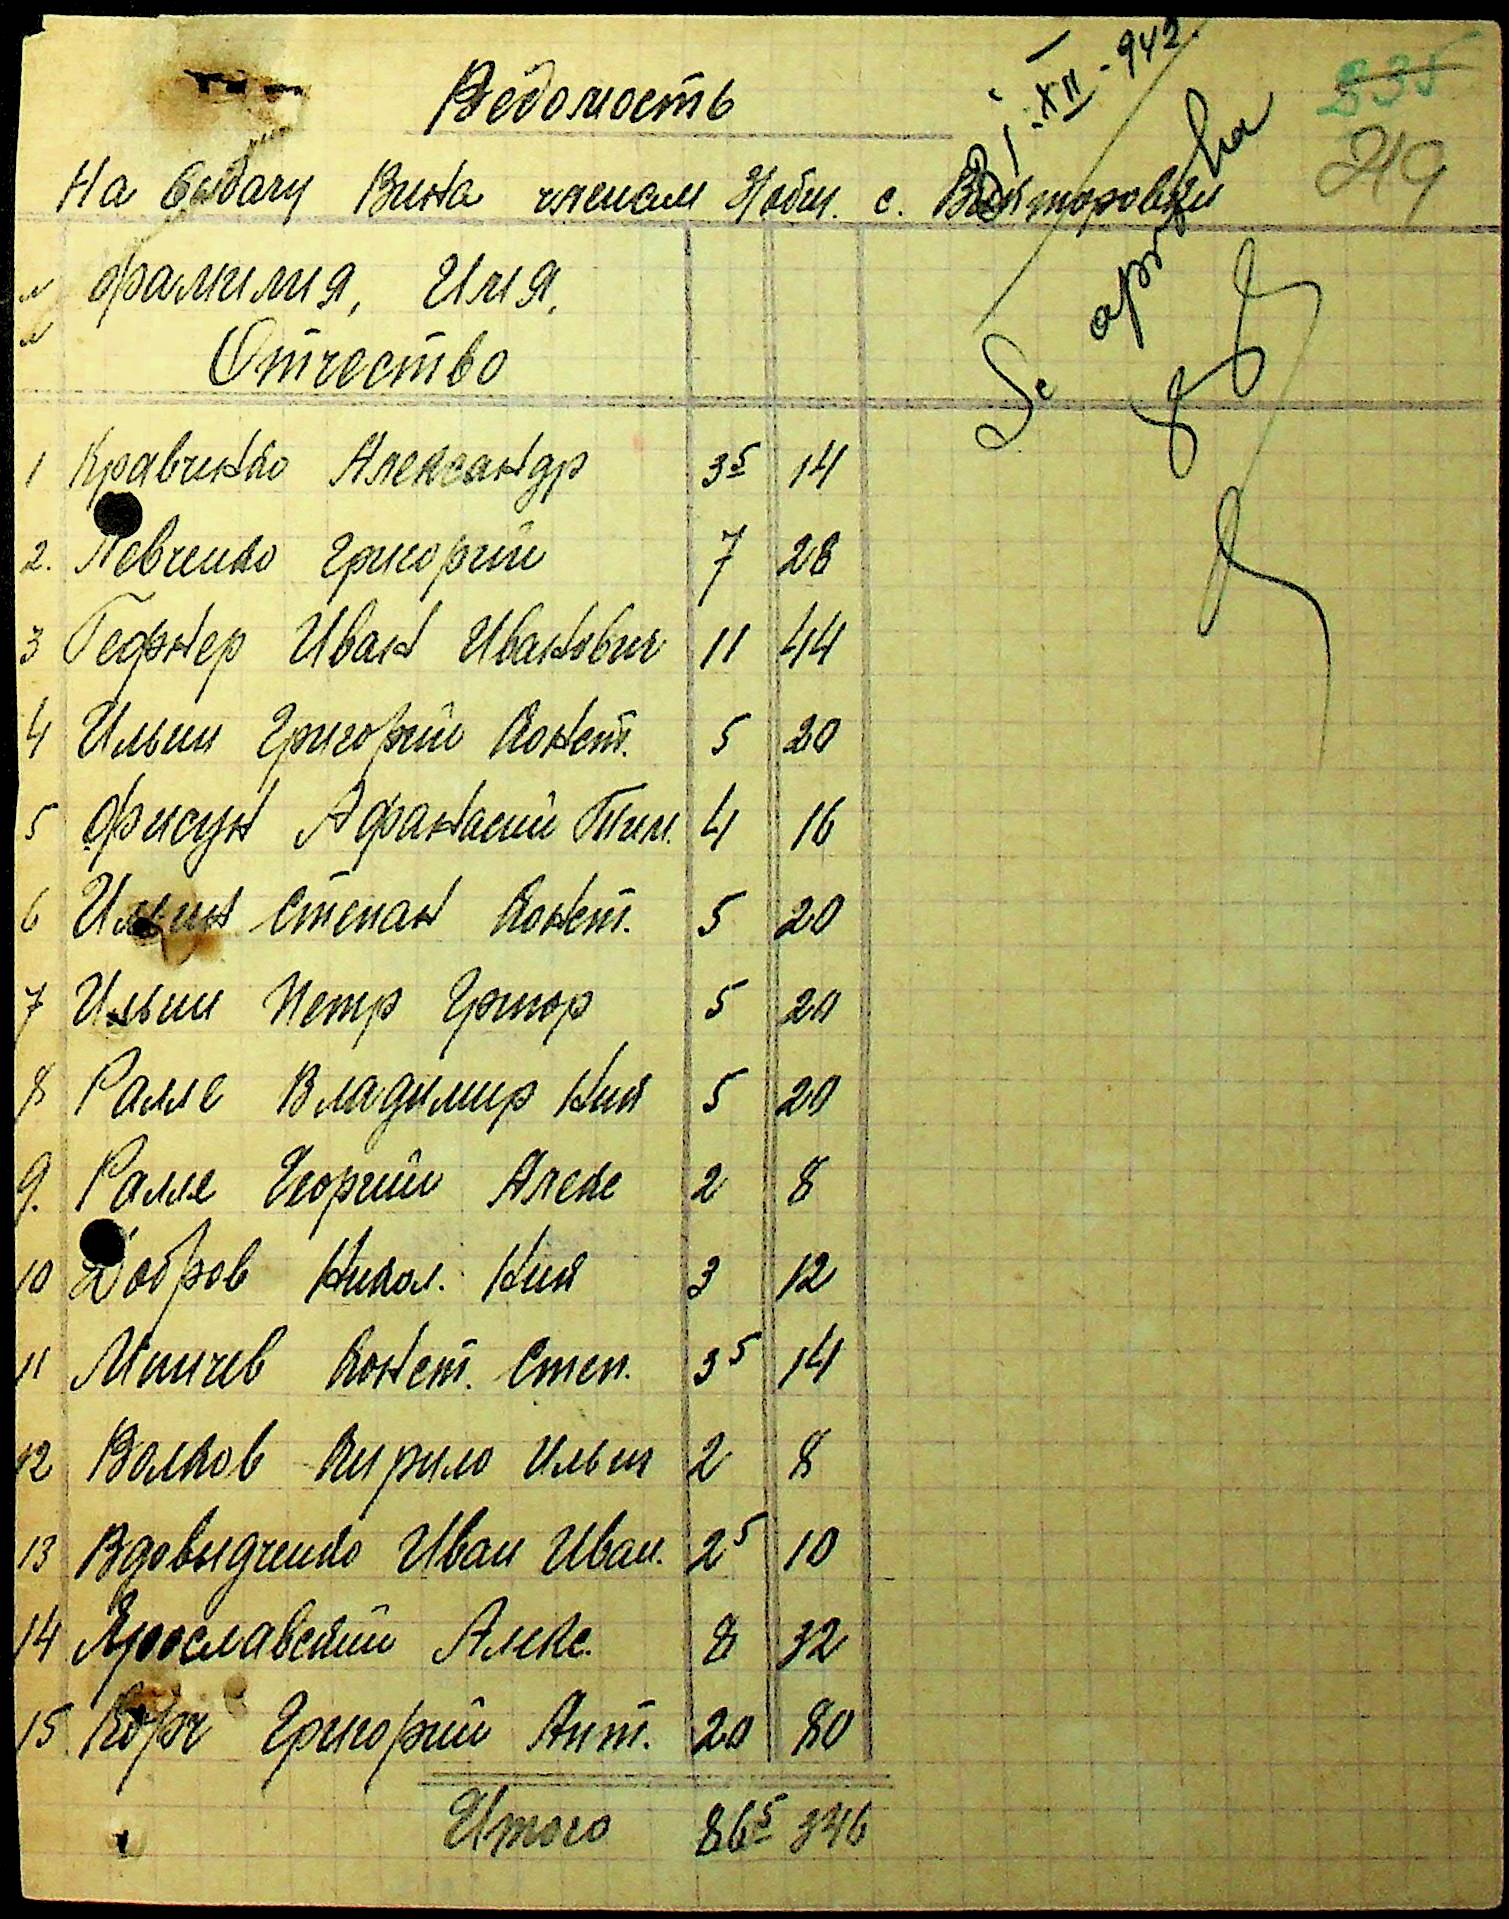 Ведомость
I.XII-942.
335
219
На выдачу Вина членам Иобщ. с. Викторовки
Se aprobă
Фамилия, Имя,
Отчество
1 Кравчинко Александр 3⁵ 14
2. Левченко Григорий 7 28
3 Гефнер Иван Иванович 11 44
4 Ильин Григорий Конст. 5 20
5 Фисун Афанасий Тим. 4 16
6 Ильин Степан Конст. 5 20
7 Ильин Петр Григор 5 20
8 Ралле Владимир Ник 5 20
9. Ралле Георгий Алекс 2 8
10 Добров Никол. Ник 3 12
11 Минчев Конст. Степ. 3⁵ 14
12 Волков Кирило Ильич 2 8
13 Вдовыдченко Иван Иван. 2⁵ 10
14 Ярославский Алекс. 8 32
15 Корч Григорий Ант. 20 80
Итого 86⁵ 346